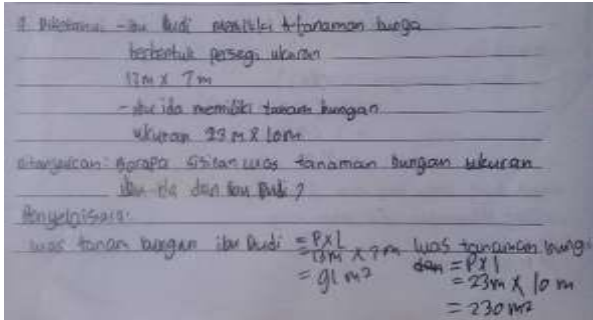 Diketahui - ibu Budi memiliki tanaman bunga
berbentuk persegi ukuran
13m x 7m
- ibu ida memiliki tanam bungan
ukuran 23 m x 10m
ditanyakan: Berapa luas tanaman bungan ukuran
ibu ida dan ibu Budi ?
luas tanam bungan ibu Budi = P x l
= 13m x 7m
= 91 m²
luas tanaman bungi
= P x l
= 23m x 10 m
= 230 m²